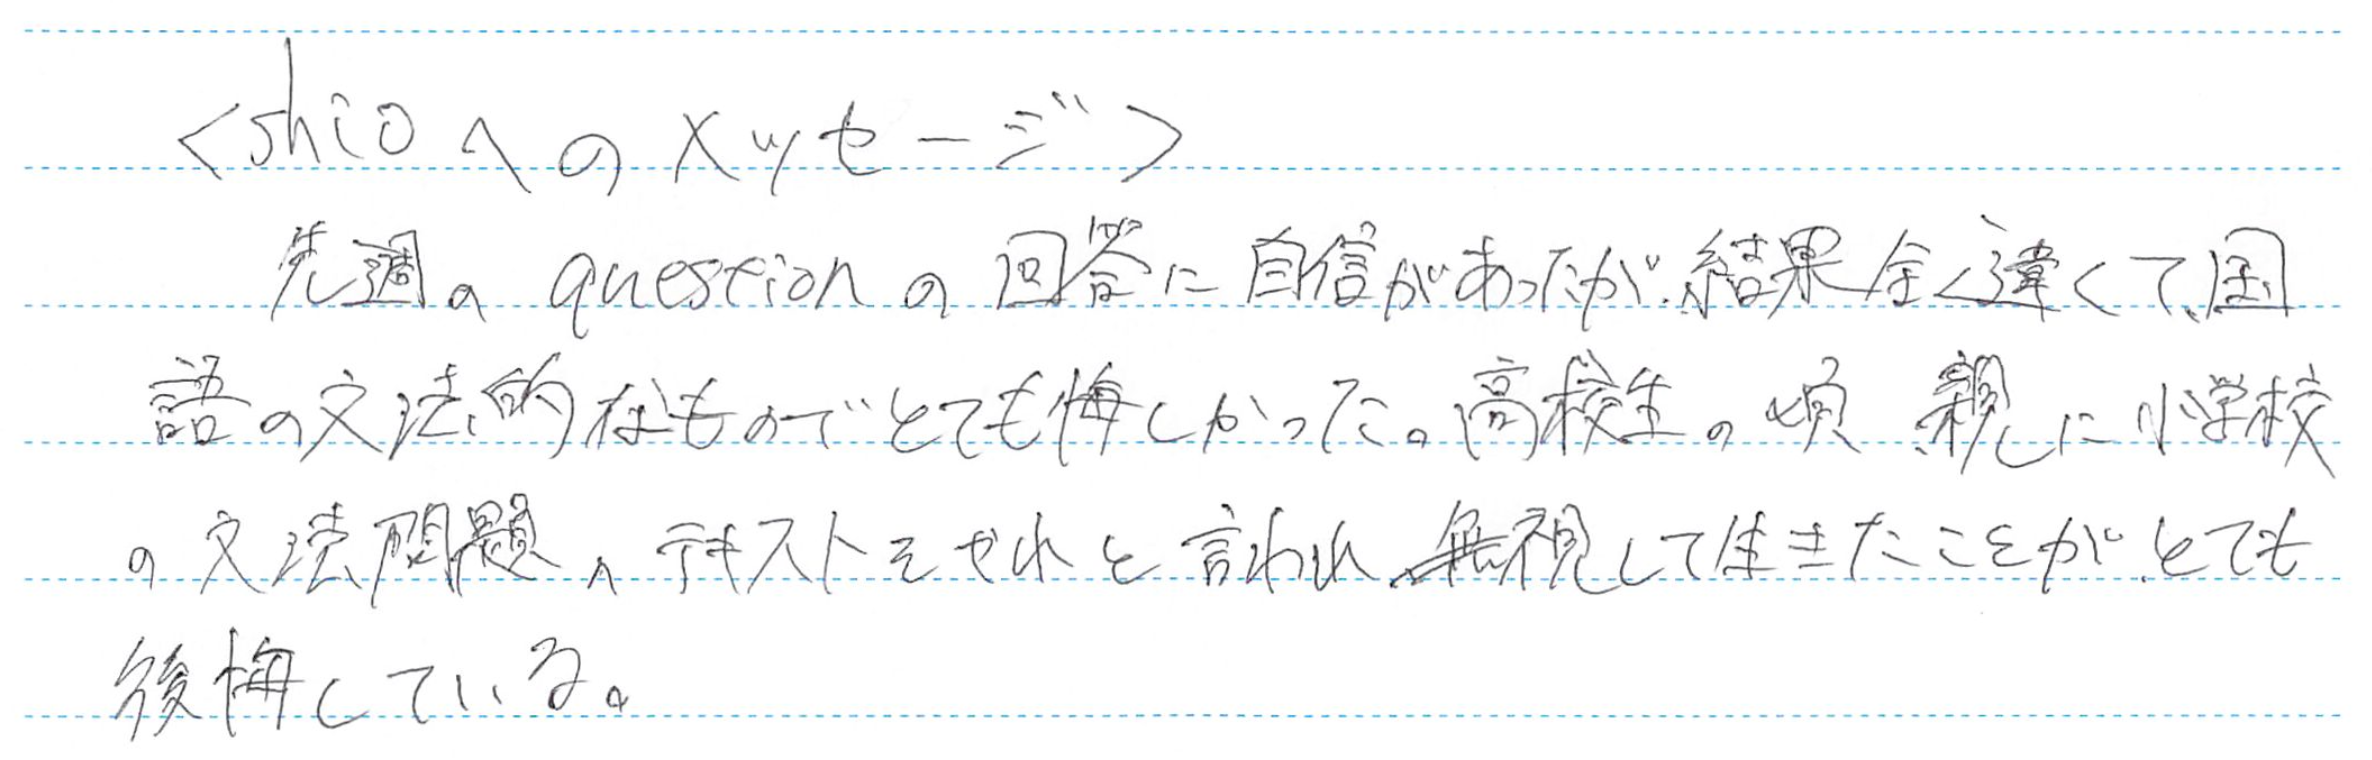 <shioへのメッセージ>
先週のquestionの回答に自信があったが、結果全く違くて、国
語の文法的なものでとても悔しかった。高校生の頃、親に小学校
の文法問題のテキストをやれと言われ、無視して生きたことが、とても
後悔している。